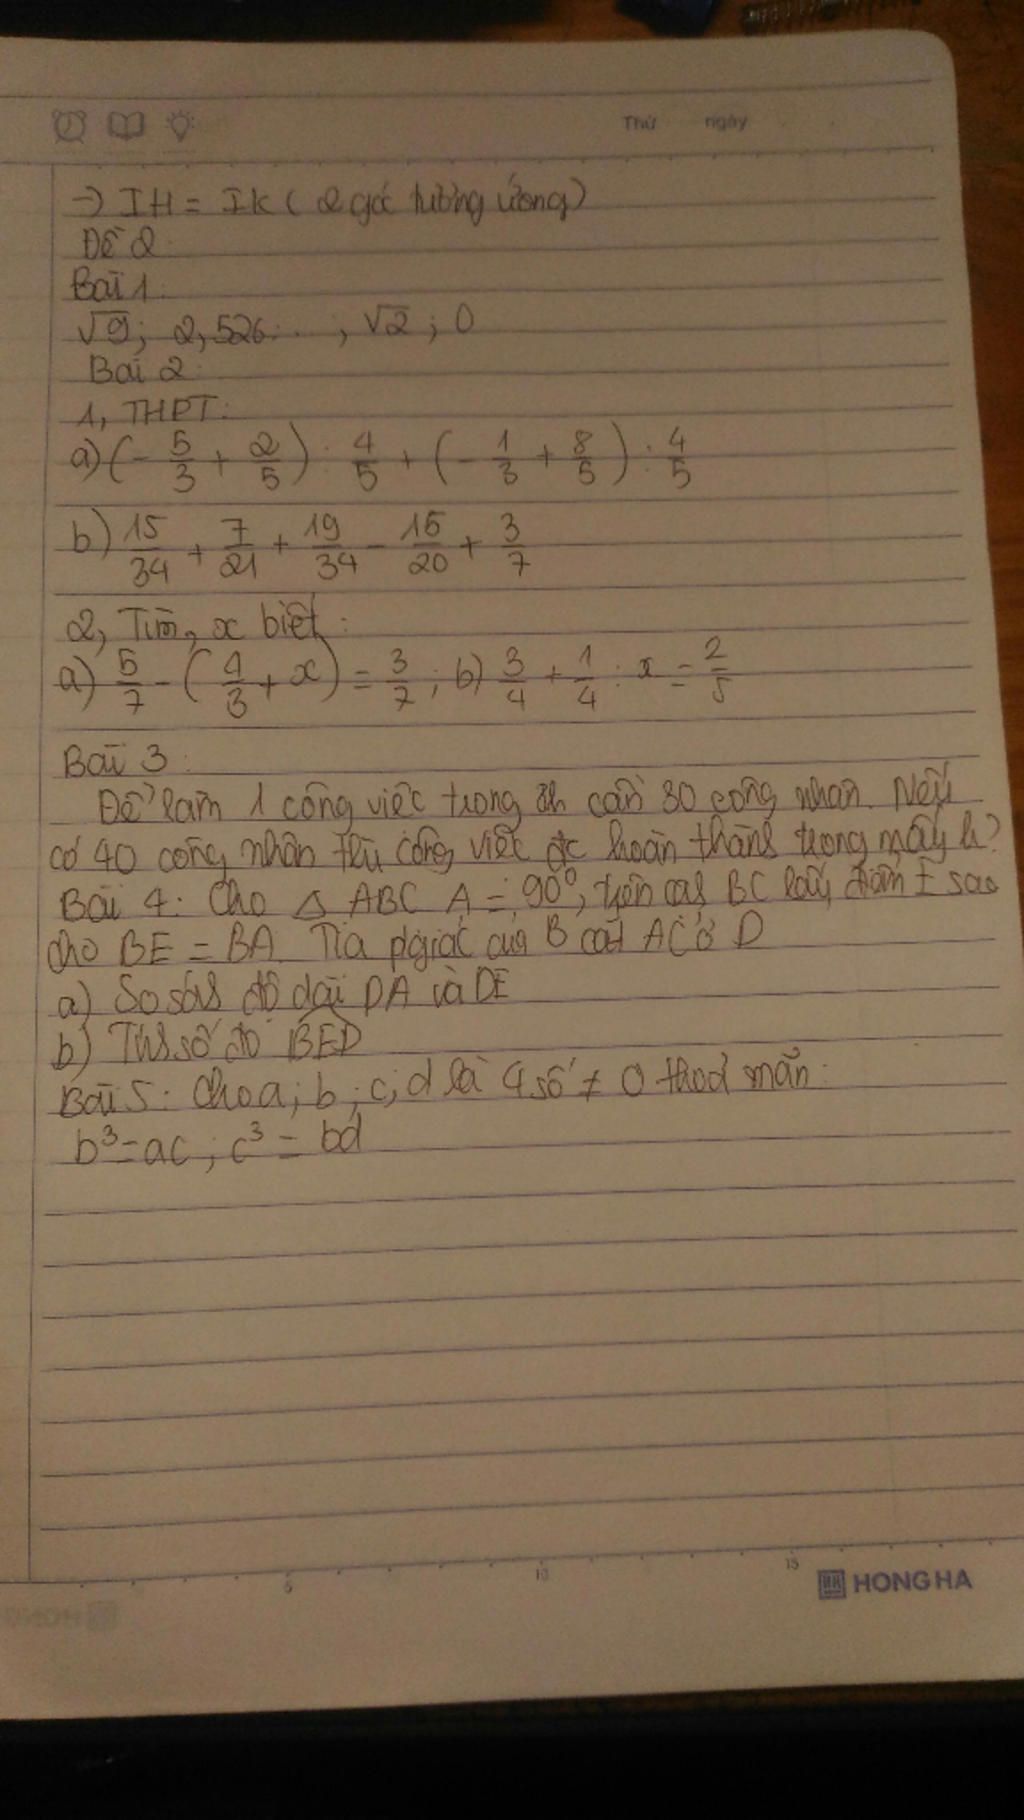 Thứ ngày
→ IH = IK ( 2 góc tương ứng)
Đề 2
Bài 1:
√9; 2,526... ; √2 ; 0
Bài 2:
1, THPT:
a) (- 5/3 + 2/5) : 4/5 + (- 1/3 + 8/5) : 4/5
b) 15/34 + 7/21 + 19/34 - 15/20 + 3/7
2, Tìm, x biết:
a) 5/7 - (4/3 + x) = 3/7 ; b) 3/4 + 1/4 : x = 2/5
Bài 3:
Để làm 1 công việc trong cần 30 công nhân. Nếu
có 40 công nhân thì công việc đc hoàn thành trong mấy h?
Bài 4: Cho △ ABC A = 90°, trên cạnh BC lấy điểm E sao
cho BE = BA. Tia pgiác của B cắt AC ở D
a) So sánh độ dài DA và DE
b) Tính số đo BED
Bài 5: Cho a; b; c, d là 4 số ≠ 0 thoả mãn:
b³=ac; c³ = bd
5 10 15
HONG HA